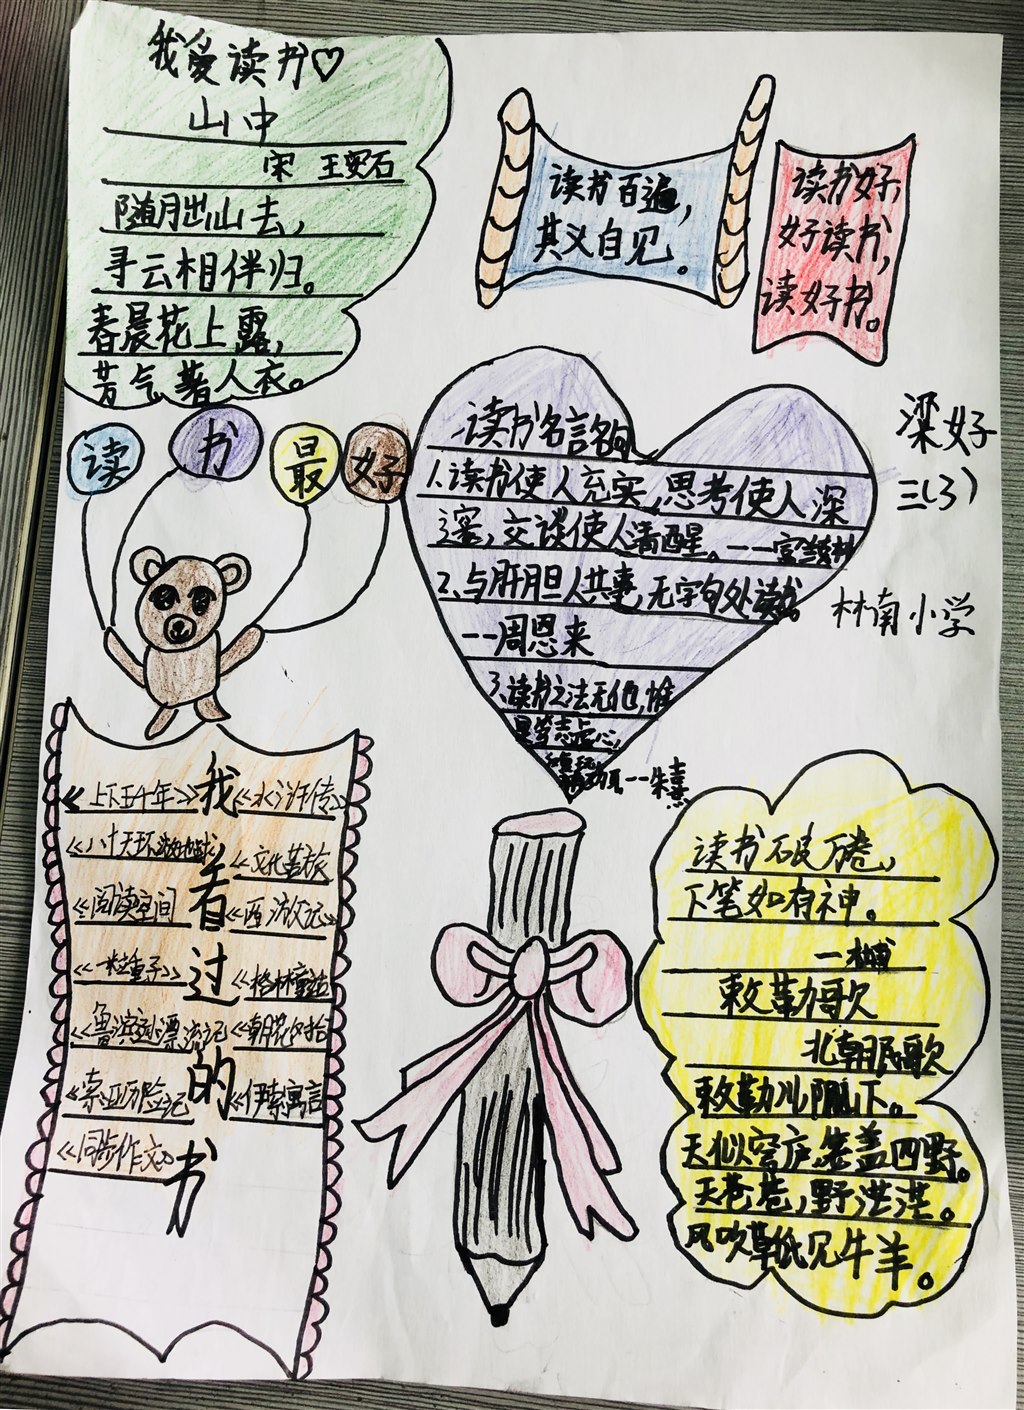 我爱读书♡
山中
宋 王安石
随月出山去，
寻云相伴归。
春晨花上露，
芳气著人衣。
读书百遍，
其义自见。
读书好，
好读书，
读好书。
读书最好
读书名言名句
1.读书使人充实，思考使人深
邃，交谈使人清醒。——富兰克林
2.与肝胆人共事，无字句处读书。
——周恩来
3.读书之法无他，惟
是笃志虚心，
——朱熹
梁好
三(3)
林南小学
我看过的书
《上下五千年》
《水浒传》
《八十天环游地球》
《文化苦旅
《阅读空间
《西游记》
《一粒种子》
《格林童话
《鲁滨逊漂流记
《朝花夕拾
《索亚历险记
《伊索寓言
《同步作文》
读书破万卷，
下笔如有神。
—杜甫
敕勒歌
北朝民歌
敕勒川，阴山下。
天似穹庐，笼盖四野。
天苍苍，野茫茫。
风吹草低见牛羊。